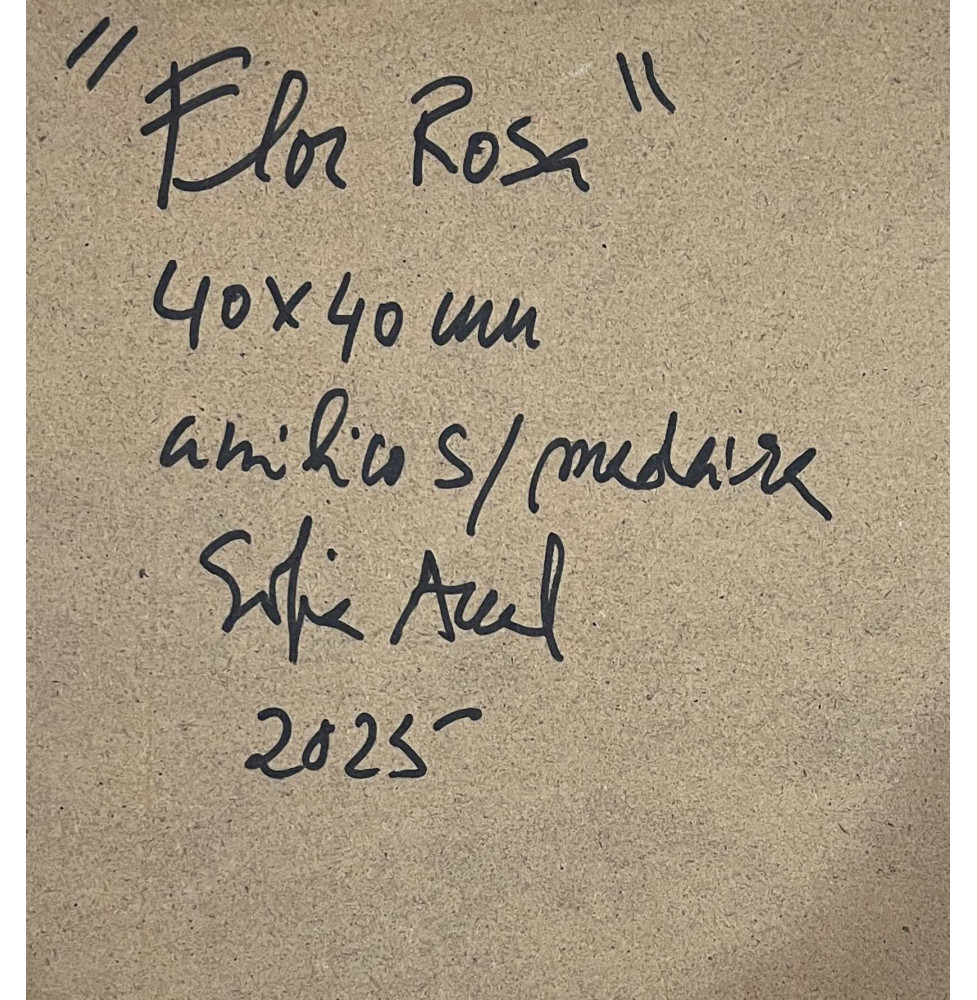 "Flor Rosa"
40x40 mm
acrílico s/ madeira
Sofia
2025